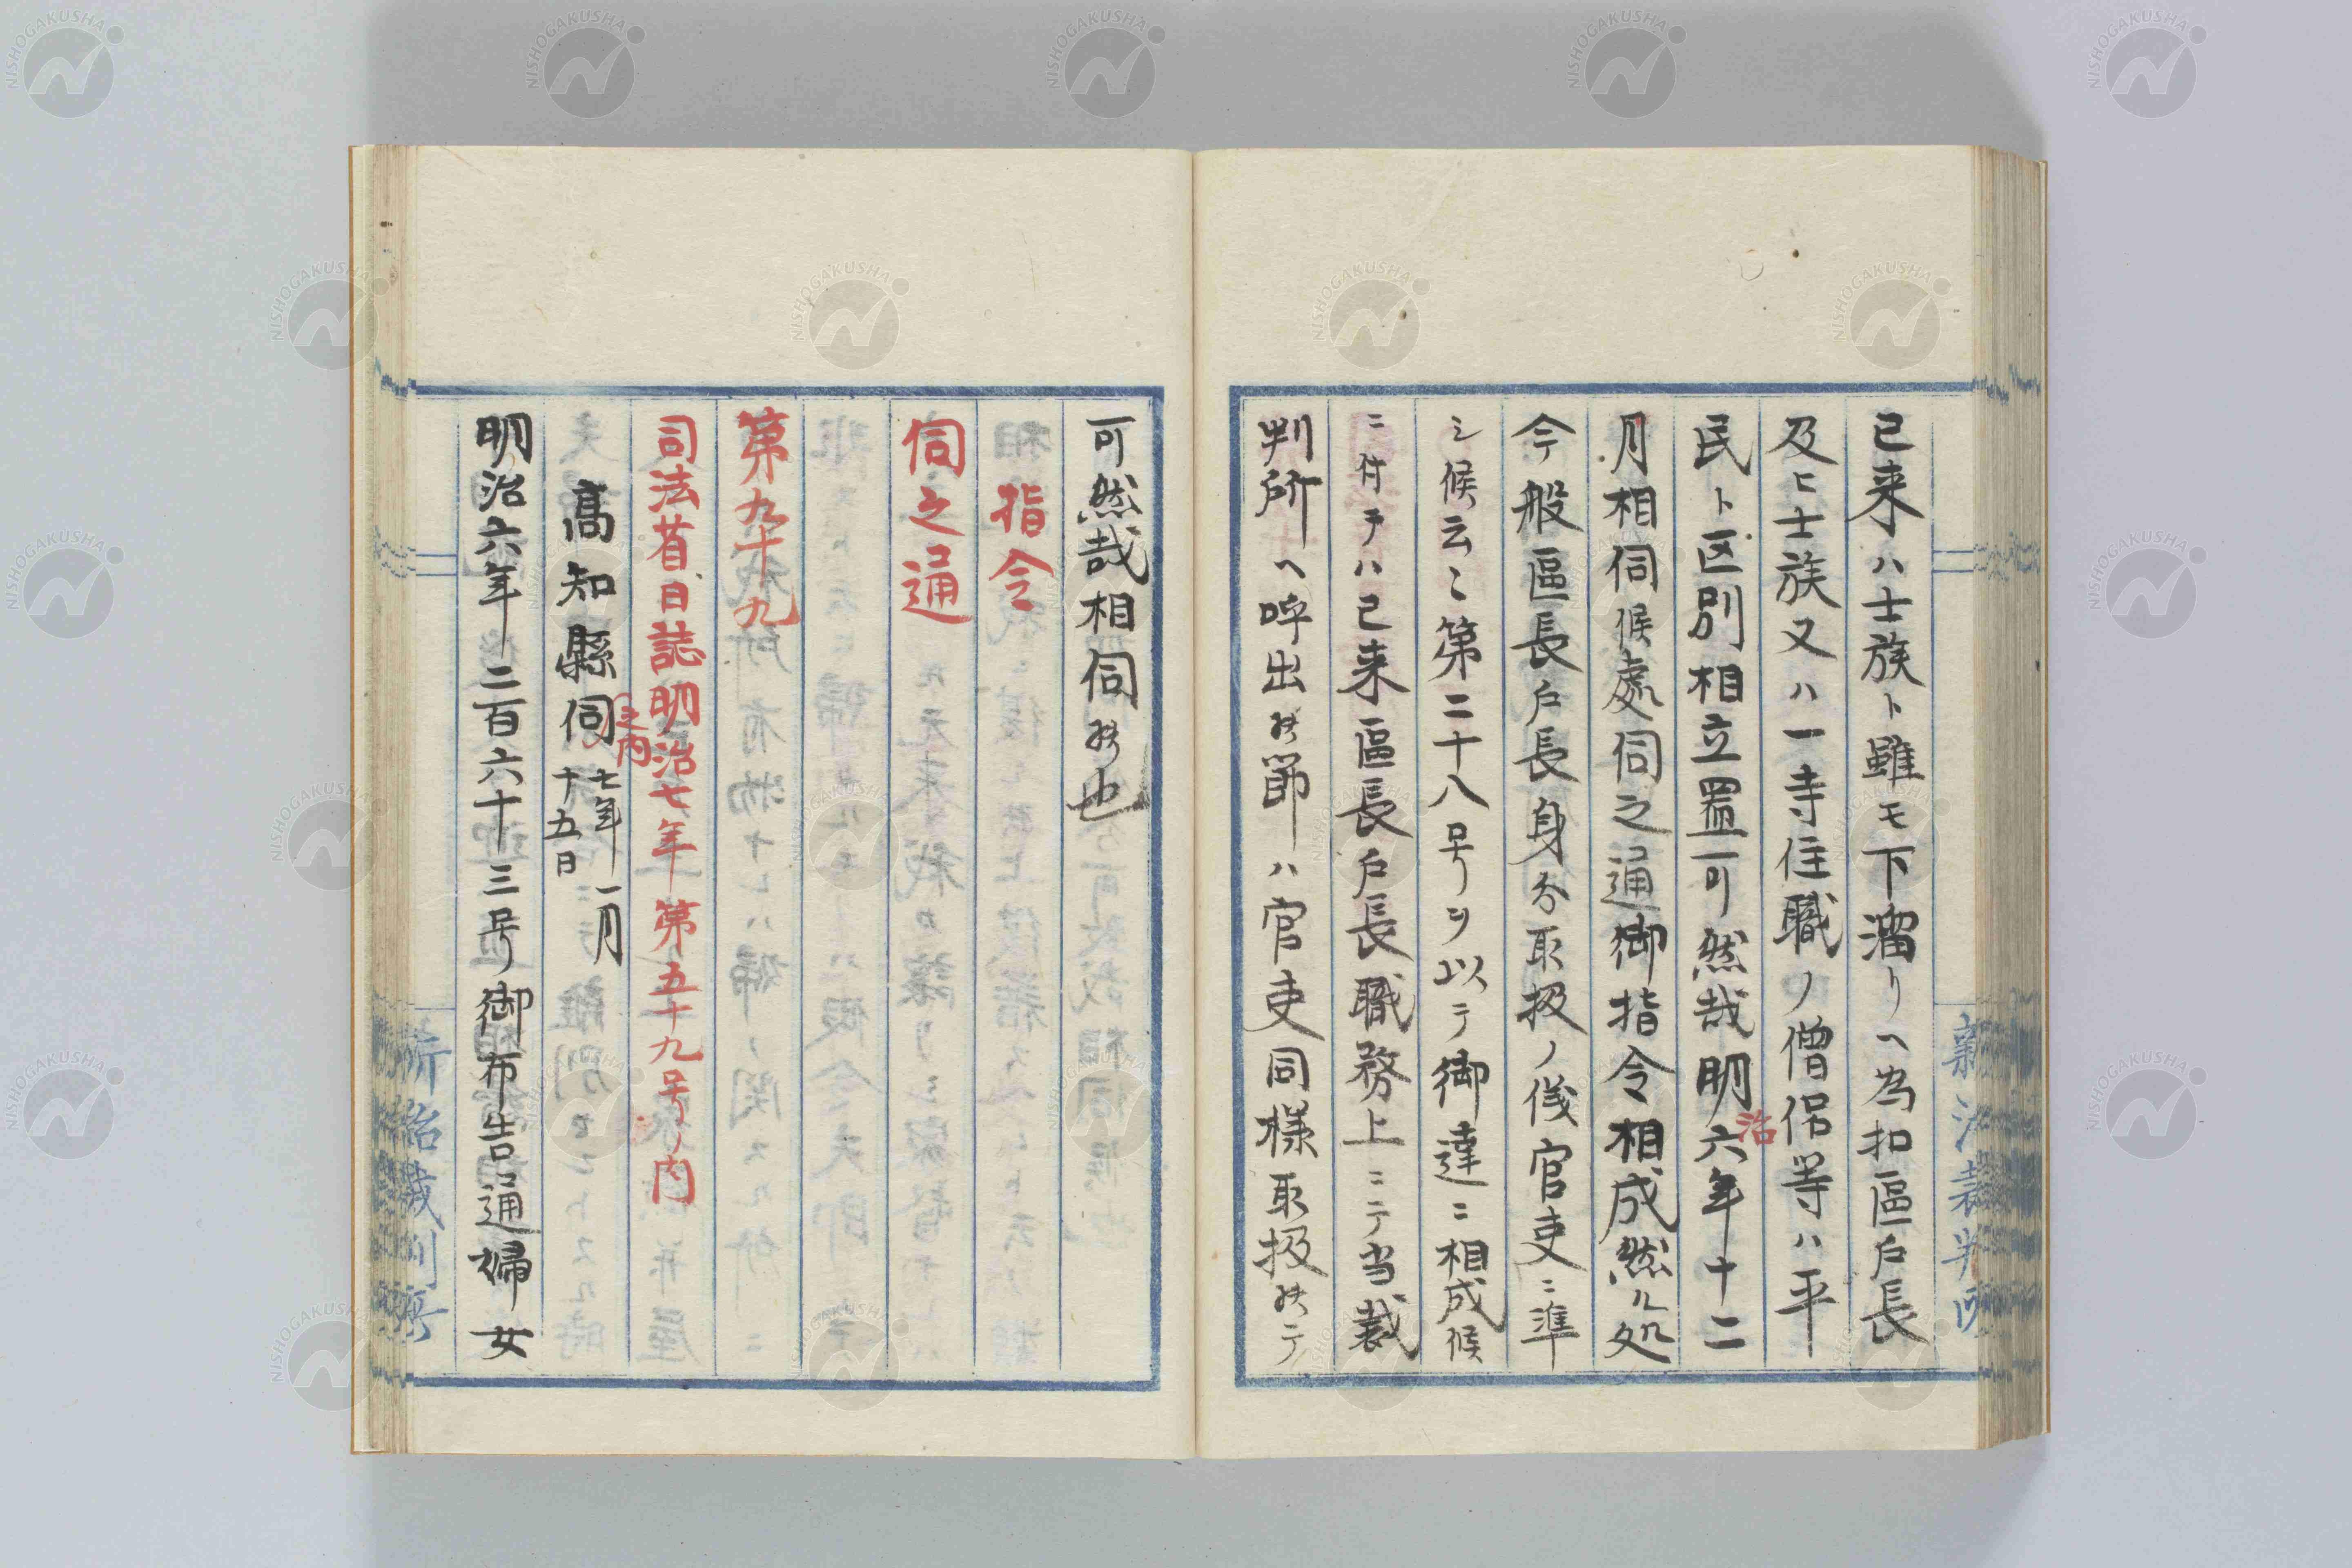 已来ハ士族ト雖モ下溜リヘ為扣區戸長
及ヒ士族又ハ一寺住職ノ僧侶等ハ平
民ト区別相立置可然哉明治六年十二
月相伺候處伺之通御指令相成然ル処
今般區長戸長身分取扱ノ儀官吏ニ準
シ候云々第二十八号ヲ以テ御達ニ相成候
ニ付テハ已来區長戸長職務上ニテ当裁
判所ヘ呼出候節ハ官吏同様取扱候テ
新治裁判所
可然哉相伺候也
指令
伺之通
第九十九
司法省日誌明治七年第五十九号ノ内
高知縣伺之内七年一月十五日
明治六年二百六十三号御布告通婦女
新治裁判所
NISHOGAKUSHA